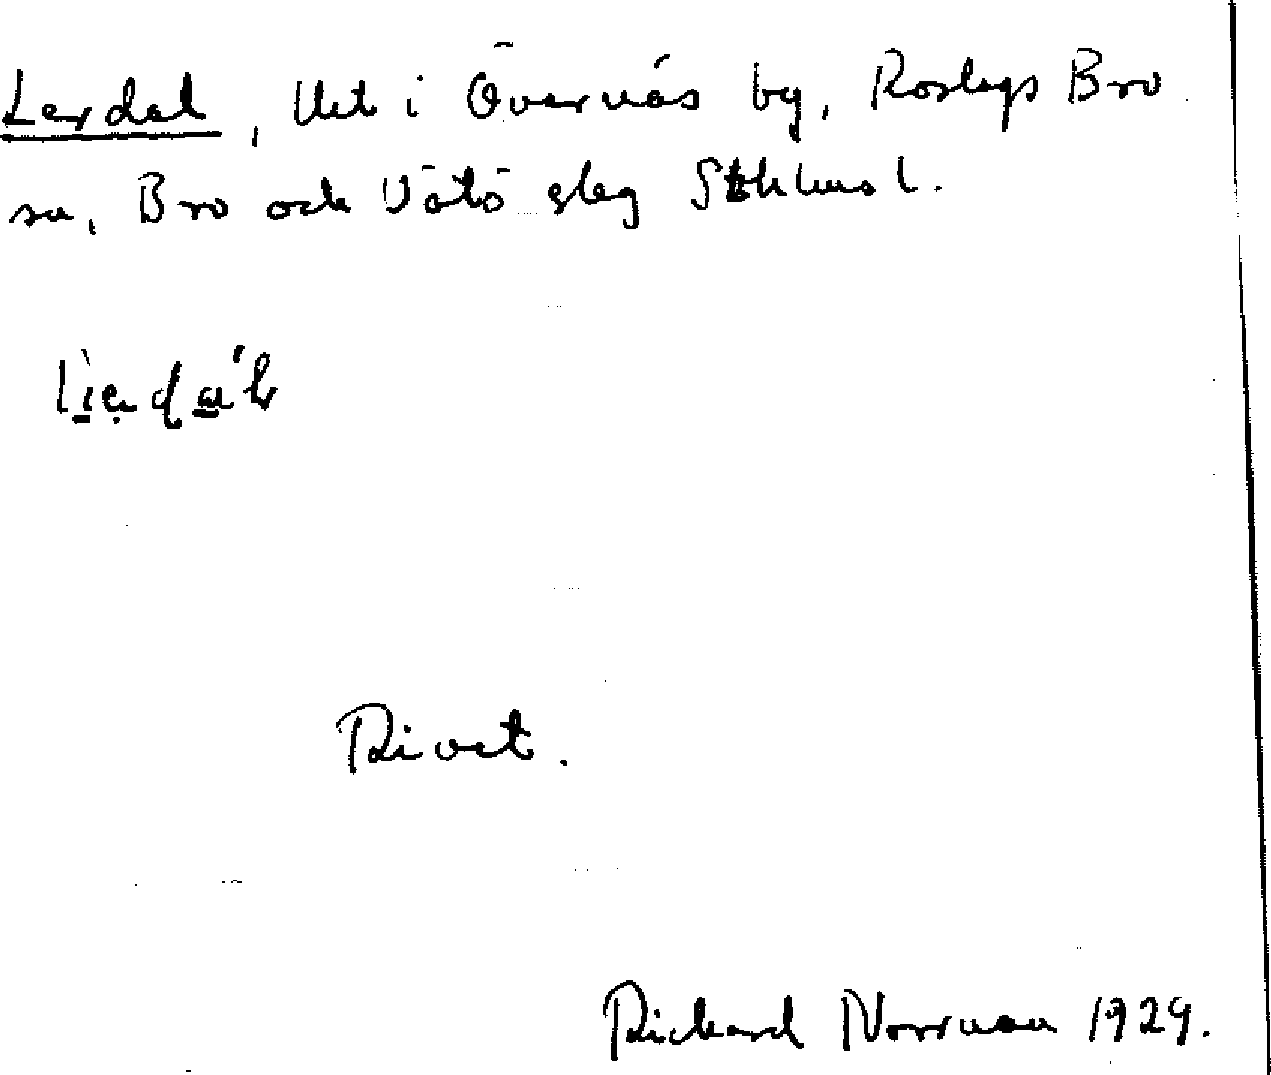 Lerdal, Ut i Övernäs by, Roslags Bro
sn, Bro och Vätö slag Sthlms l.
Rivet.
Richard Norrman 1929.